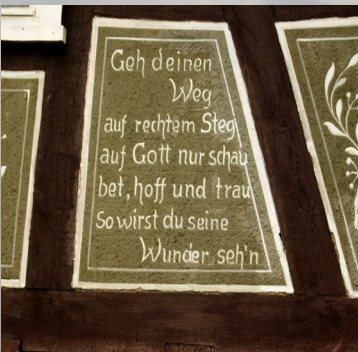 Geh deinen
Weg
auf rechtem Steg
auf Gott nur schau
bet, hoff und trau
So wirst du seine
Wunder seh'n